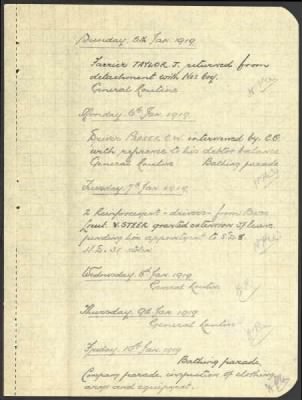 Sunday 5th Jan 1919
Farrier TAYLOR J. returned from
detachment with No2 Coy.
General Routine
Monday 6th Jan 1919.
Driver C.W. interviewed by C.O.
with reference to his debtor balance
General Routine Bathing parade
Tuesday 7th Jan 1919
2 Reinforcement - drivers - from Base
Lieut. V. STEER granted extension of leave
pending his appointment to
Wednesday 8th Jan 1919
General Routine
Thursday 9th Jan 1919
General Routine
Friday 10th Jan 1919
Bathing parade,
Company parade inspection of clothing
arms and equipment.